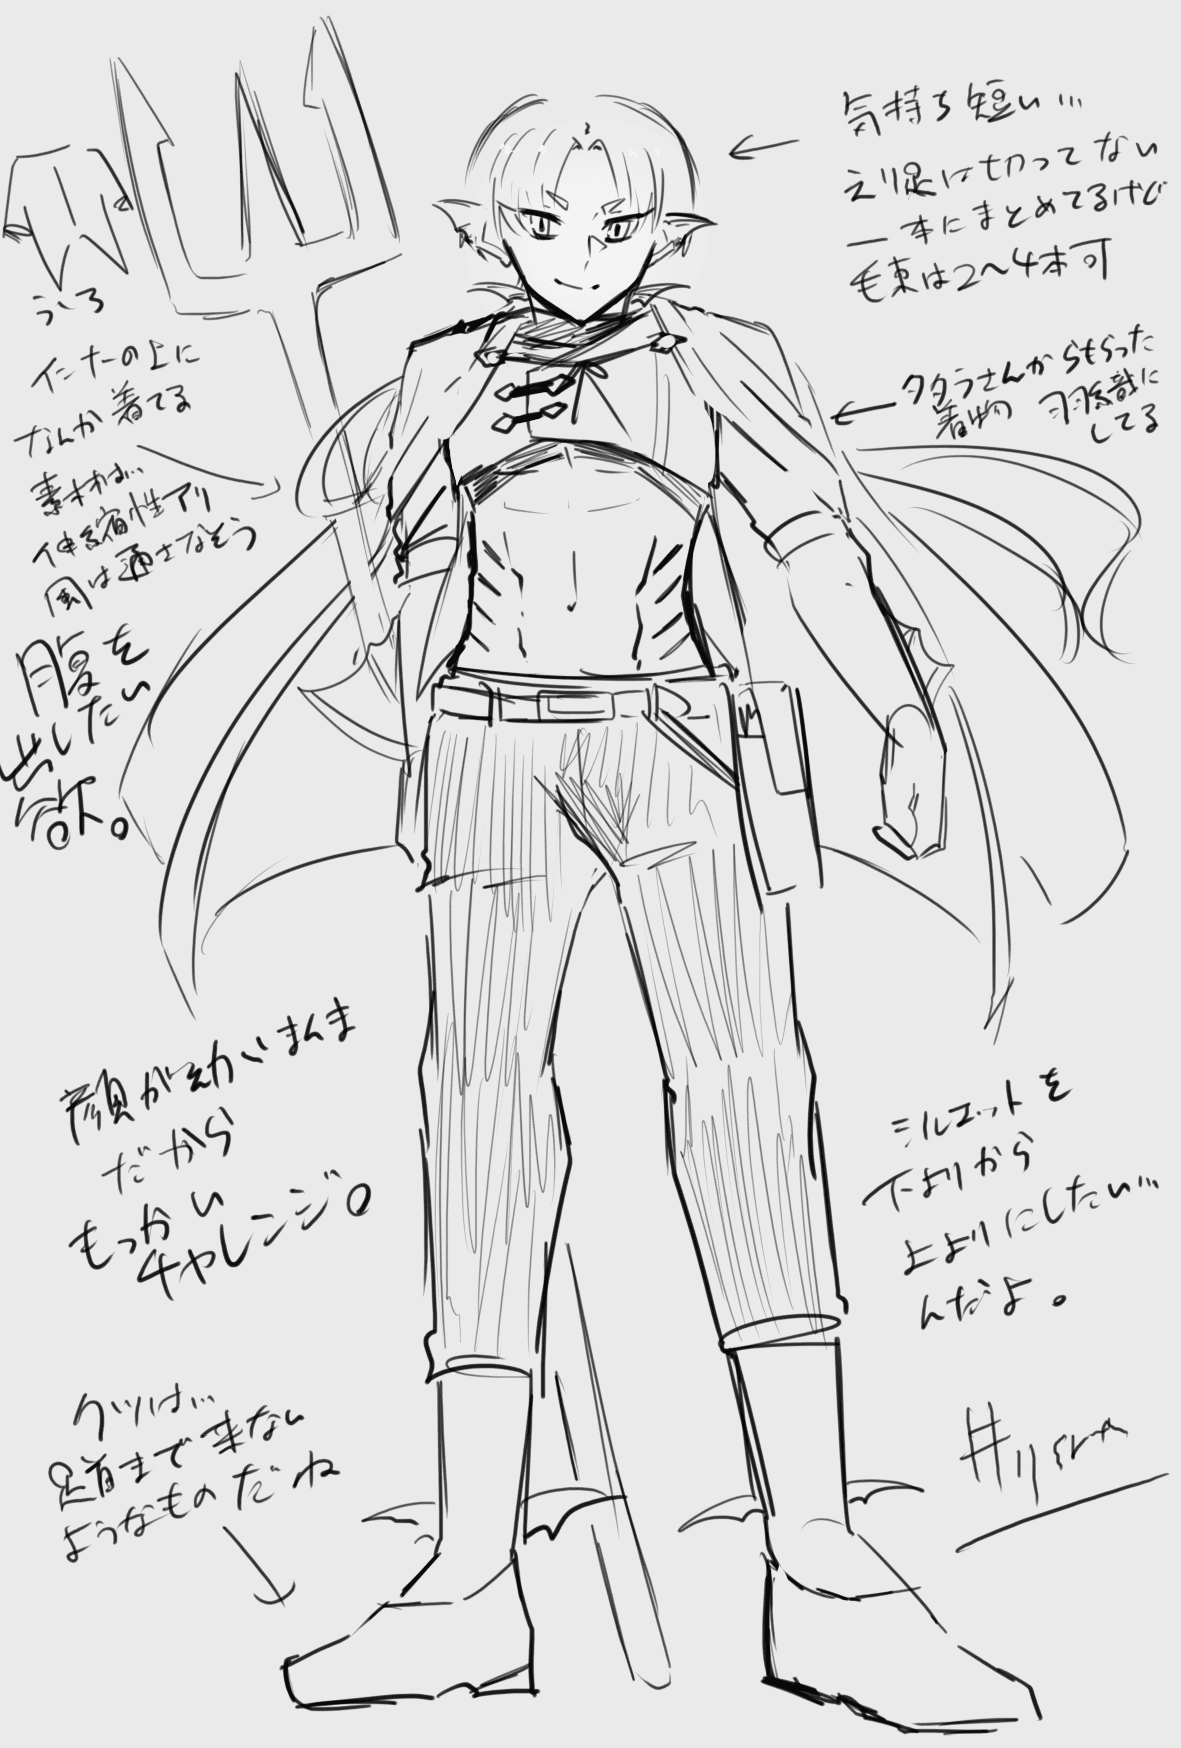 気持ち短い…
えり足は切ってない
一本にまとめてるけど
毛束は2〜4本可
うしろ
インナーの上に
なんか着てる
素材は…
伸縮性アリ
風は通さなそう
腹を
出したい
欲。
タタラさんからもらった
着物 羽織に
してる
顔が幼いまんま
だから
もっかい
チャレンジ。
シルエットを
下よりから
上よりにしたい…
んだよ。
クツは…
足首まで来ない
ようなものだね